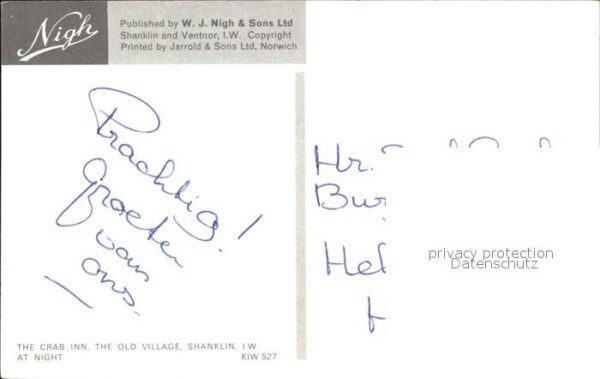 Nigh
Published by W. J. Nigh & Sons Ltd
Shanklin and Ventnor, I.W. Copyright
Printed by Jarrold & Sons Ltd, Norwich
Prachtig!
groeten
van
ons.
Hr.
Bur
Hel
privacy protection
Datenschutz
THE CRAB INN, THE OLD VILLAGE, SHANKLIN, I.W.
AT NIGHT KIW 527